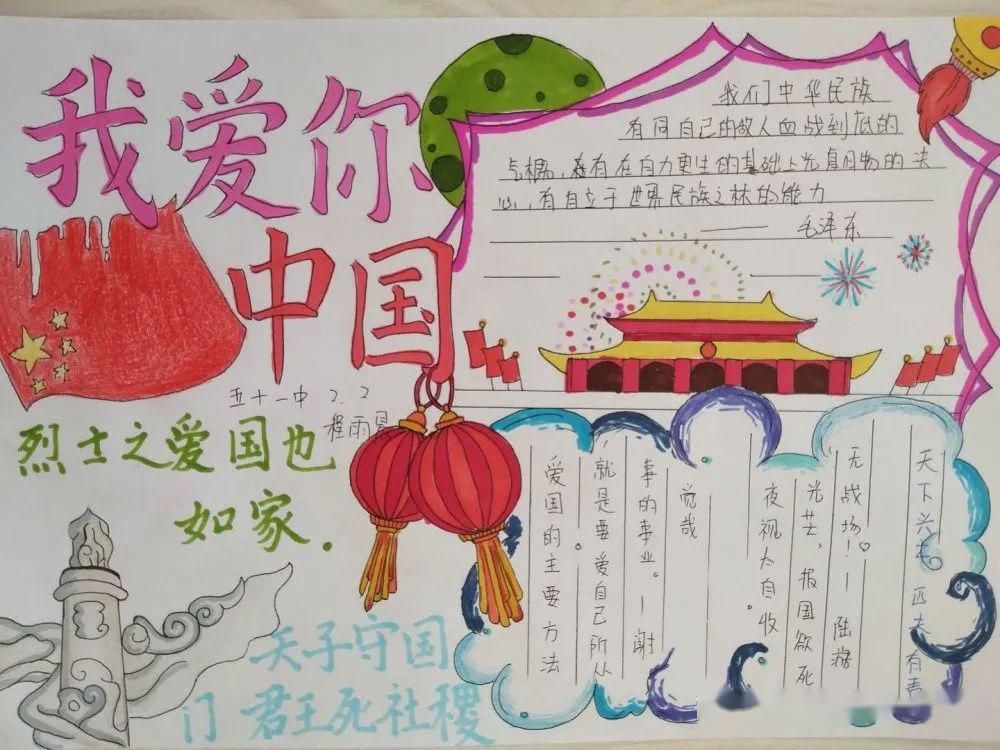 我爱你
中国
五十一中 2.2
程雨
烈士之爱国也
如家.
天子守国
门 君王死社稷
我们中华民族
有同自己的敌人血战到底的
气概,有在自力更生的基础上光复旧物的决
心,有自立于世界民族之林的能力
—— 毛泽东
爱国的主要方法
就是要爱自己所从
事的事业。—谢
觉哉
夜视太自收。
光芒,报国欲死
无战场!—陆游
天下兴亡 匹夫有责